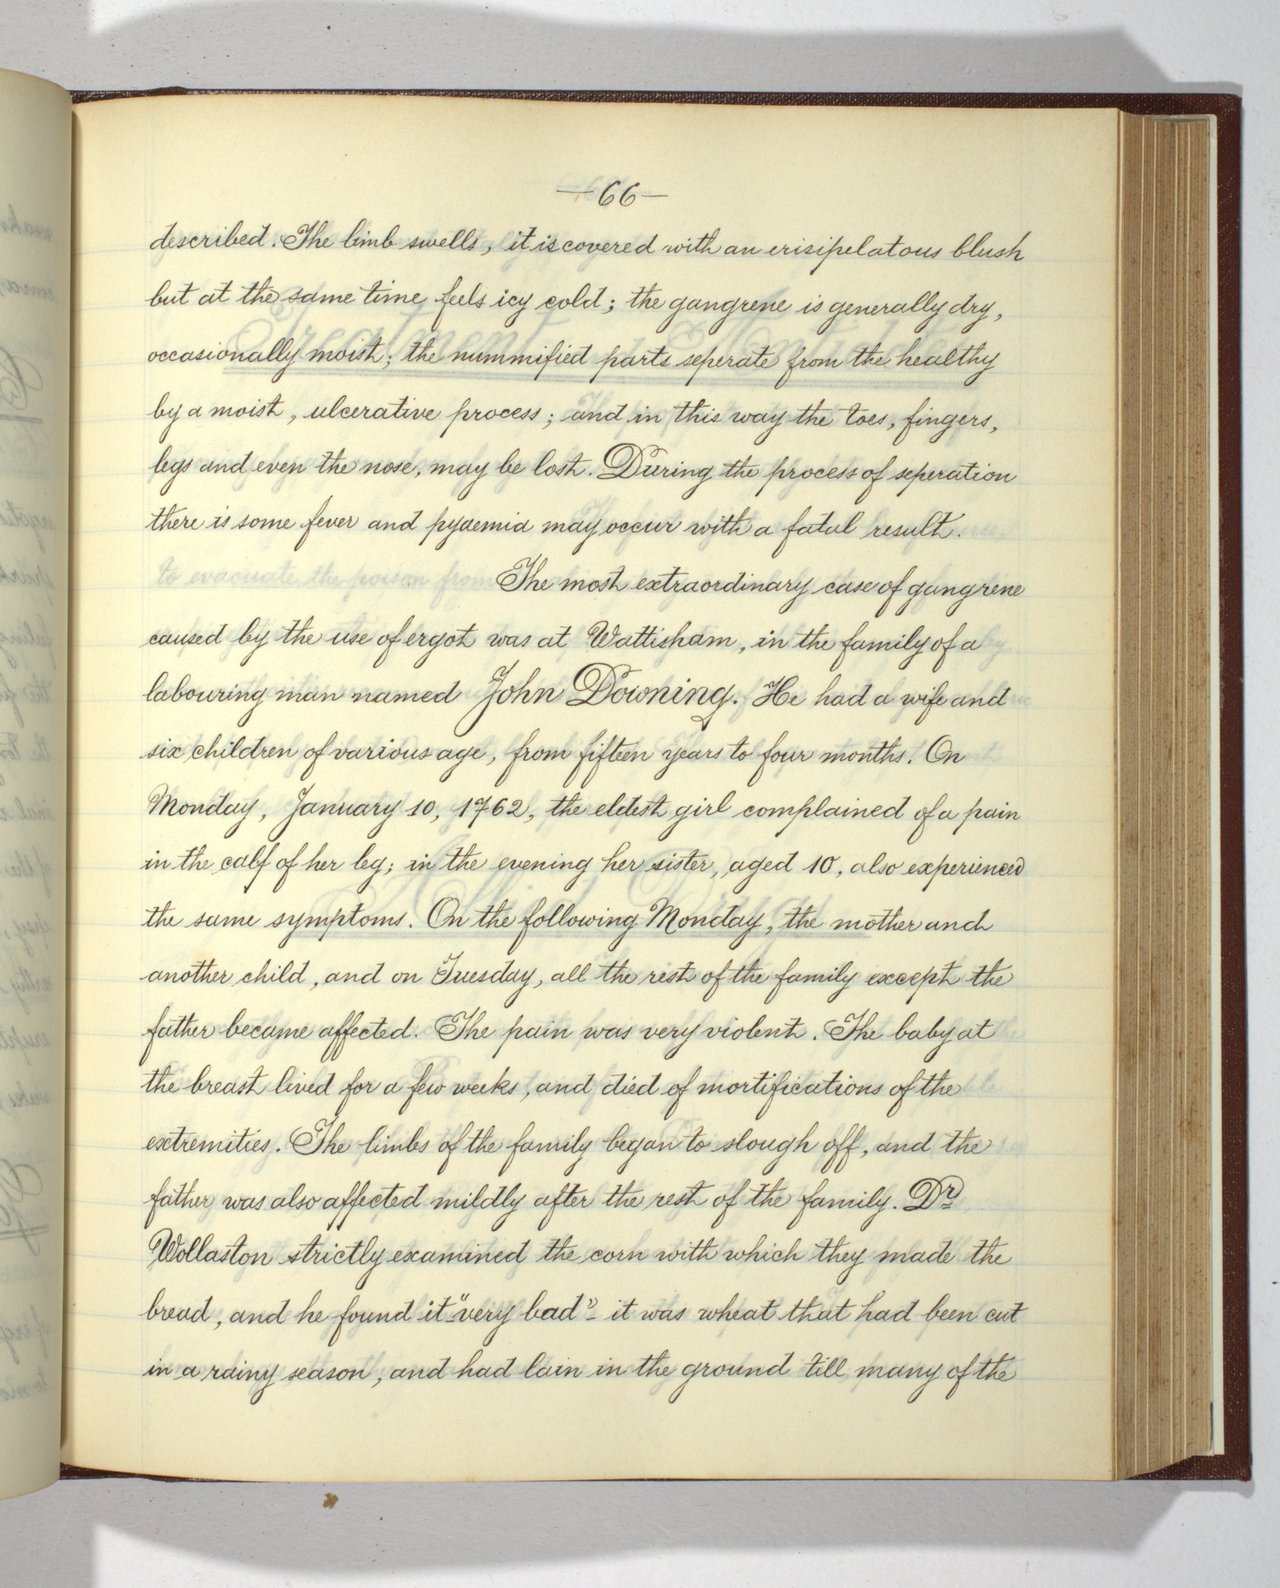 —66—
described. The limb swells, it is covered with an erisipelatous blush
but at the same time feels icy cold; the gangrene is generally dry,
occasionally moist; the nummified parts seperate from the healthy
by a moist, ulcerative process; and in this way the toes, fingers,
legs and even the nose, may be lost. During the process of seperation
there is some fever and pyaemia may occur with a fatal result.
The most extraordinary case of gangrene
caused by the use of ergot was at Wattisham, in the family of a
labouring man named John Downing. He had a wife and
six children of various age, from fifteen years to four months. On
Monday, January 10, 1762, the eldest girl complained of a pain
in the calf of her leg; in the evening her sister, aged 10, also experienced
the same symptoms. On the following Monday, the mother and
another child, and on Tuesday, all the rest of the family except the
father became affected. The pain was very violent. The baby at
the breast lived for a few weeks, and died of mortifications of the
extremities. The limbs of the family began to slough off, and the
father was also affected mildly after the rest of the family. Dr
Wollaston strictly examined the corn with which they made the
bread, and he found it "very bad" - it was wheat that had been cut
in a rainy season, and had lain in the ground till many of the